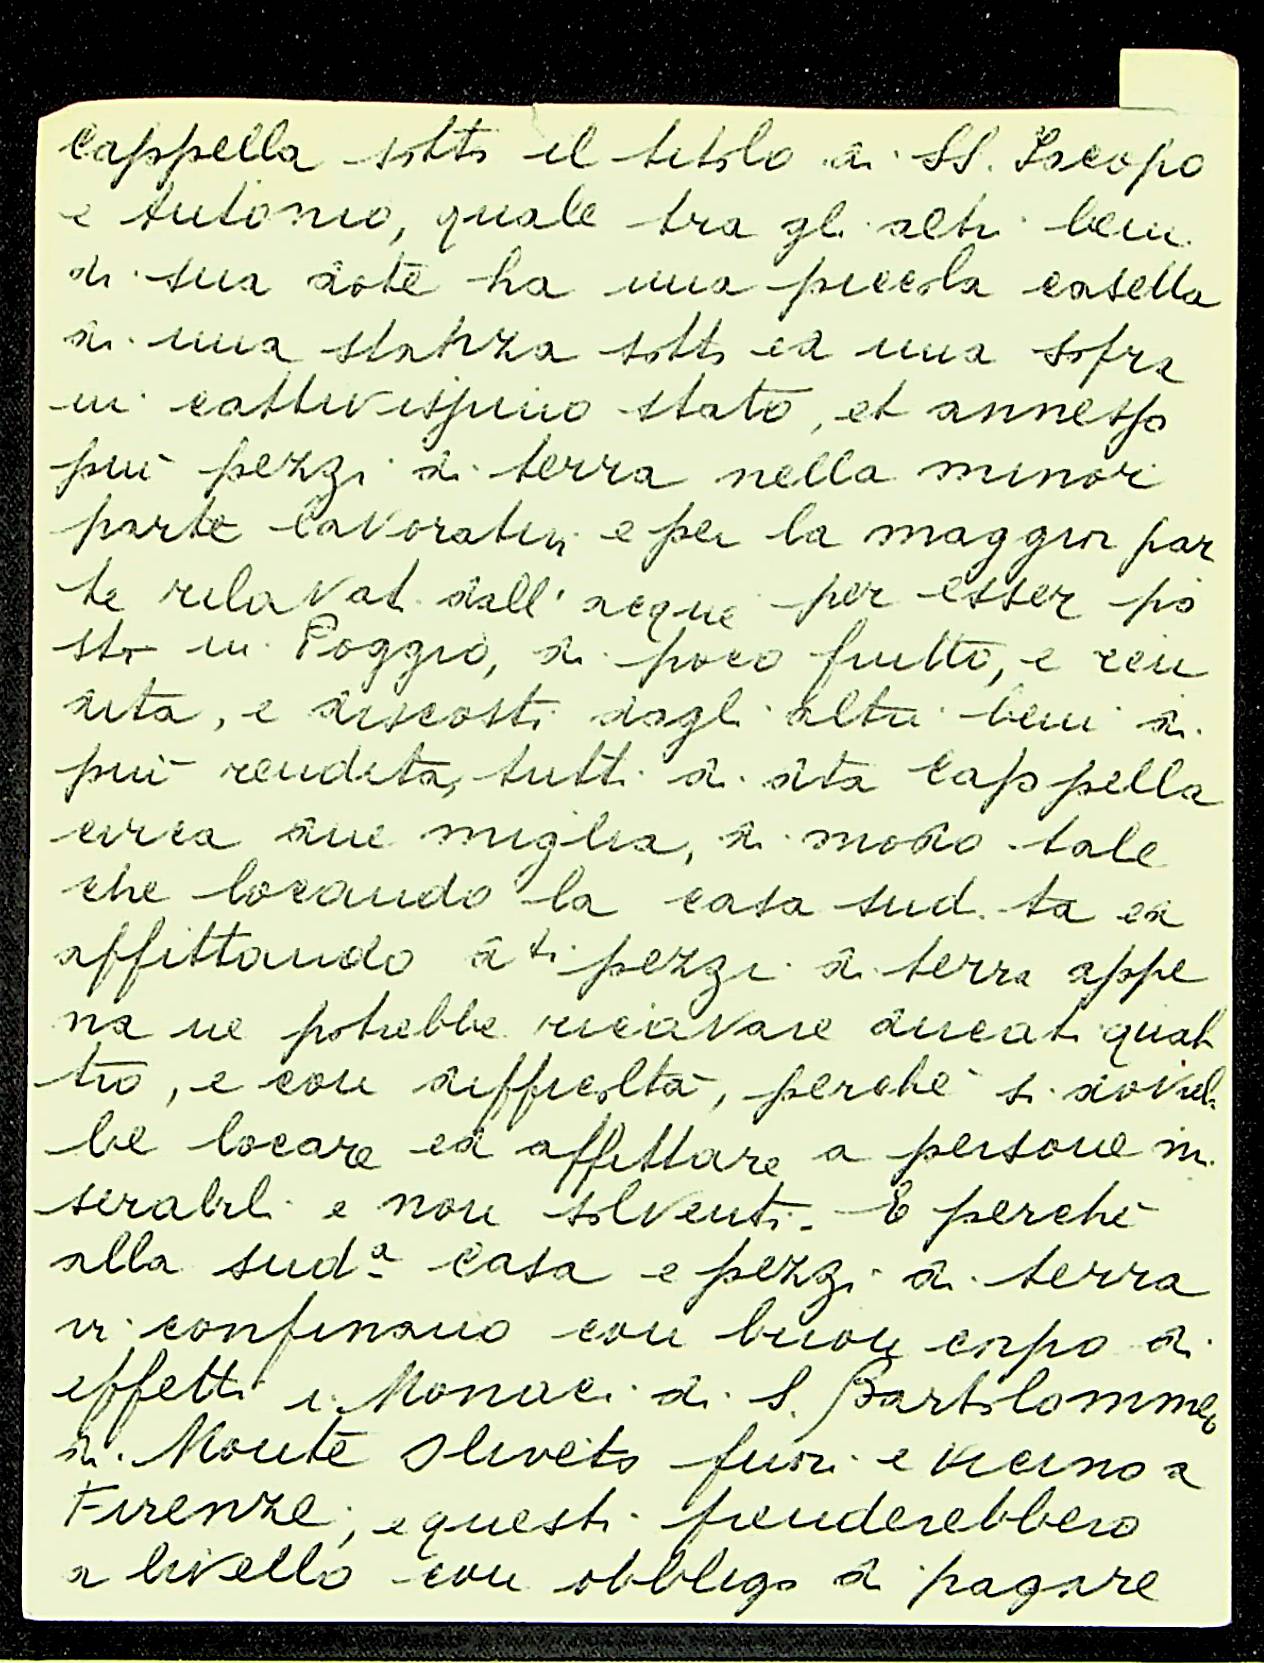 Cappella sotto il titolo di SS. Iacopo
e Antonio, quale tra gli altri beni
di sua dote ha una piccola casella
di una stanza sotto ed una sopra
in cattivissimo stato, et annesso
più pezzi di terra nella minor
parte lavorativi e per la maggior par
te rilavat. dall'acque per esser po
sto in Poggio, di poco frutto, e ren
dita, e discosti dagli altri beni di
più rendita, tutti di dta Cappella
circa due miglia, di modo tale
che locando la casa sud.ta ed
affittando dti pezzi di terra appe
na ne potrebbe ricavare ducati quat
tro, e con difficoltà, perché si dovreb
be locare ed affittare a persone mi
serabili e non solventi. E perché
alla sudª casa e pezzi di terra
vi confinano con buon corpo di
effetti i Monaci di S. Bartolommeo
di Monte Oliveto fuori e vicino a
Firenze, e questi prenderebbero
a livello con obbligo di pagare